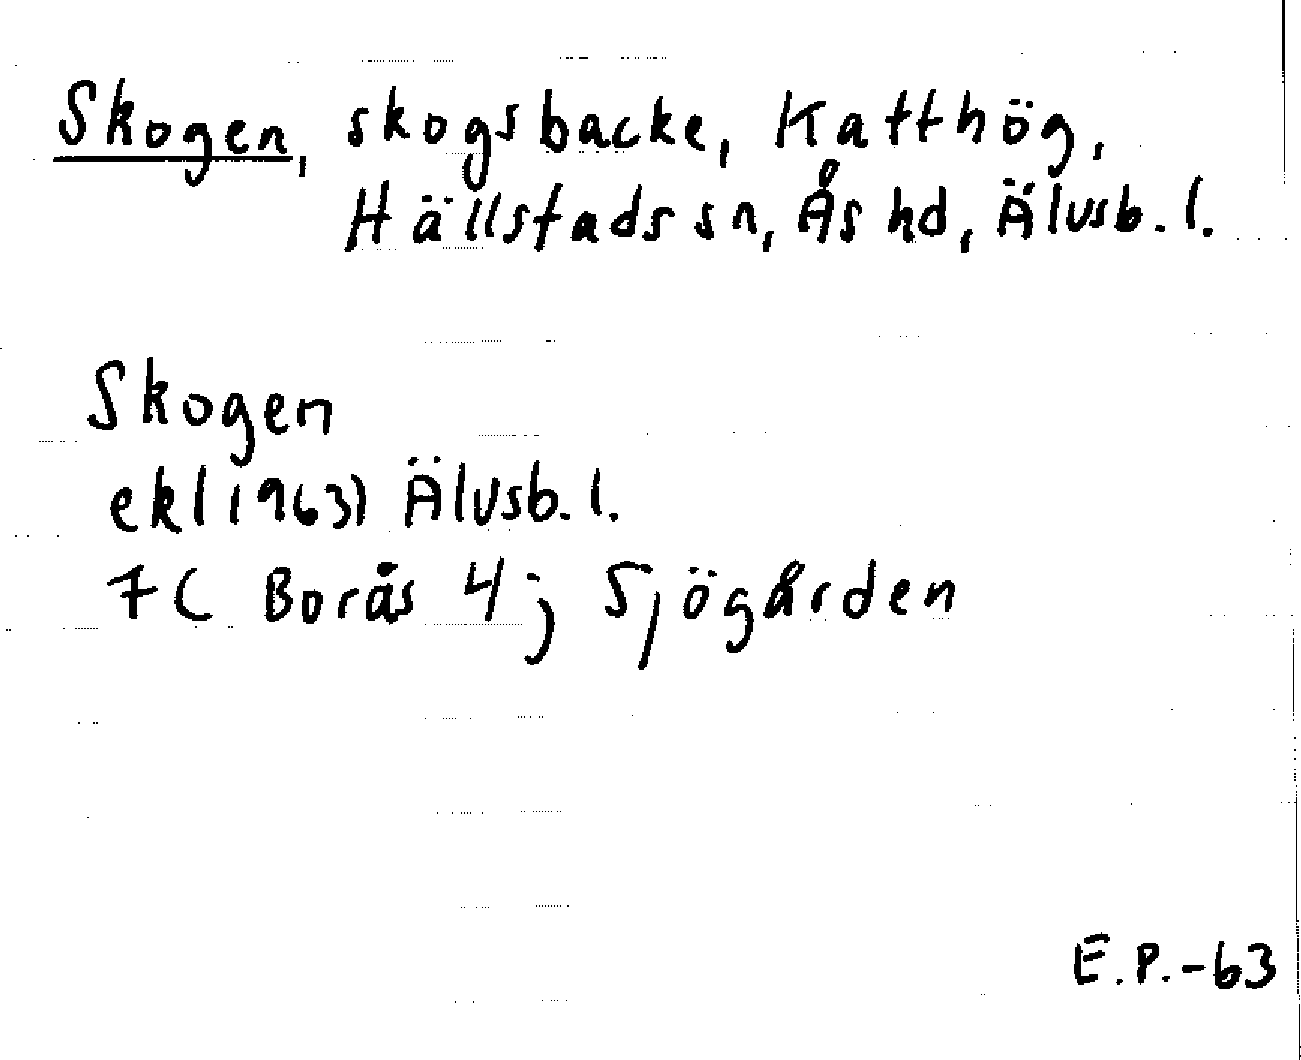 Skogen, skogsbacke, Katthög,
Hällstads sn, Ås hd, Älvsb. l.
Skogen
ekl(1963) Älvsb. l.
7C Borås 4; Sjögården
E.P.-63